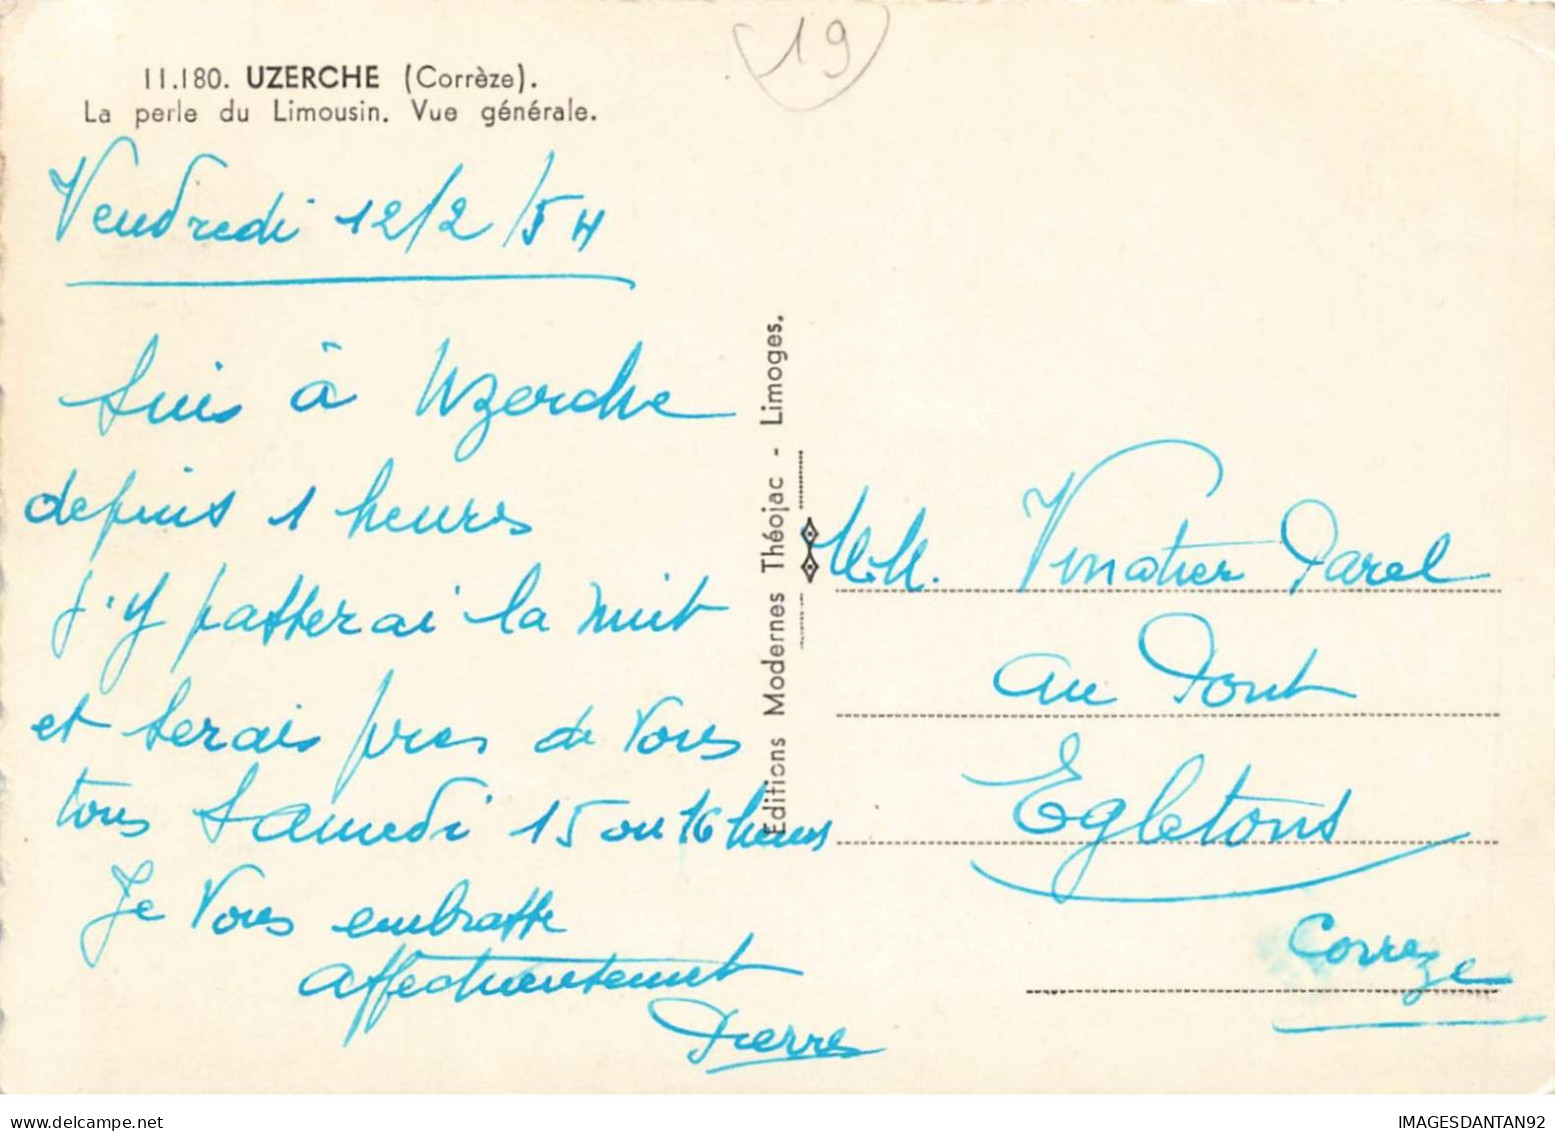 19
11.180. UZERCHE (Corrèze).
La perle du Limousin. Vue générale.
Vendredi 12/2/54
Suis à Uzerche
depuis 1 heures
j'y passerai la nuit
et serais pres de vous
tous Samedi 15 ou 16 heures
Je vous embrasse
affectueusement
Pierre
Editions Modernes Théojac - Limoges.
M.M. Vinatier Parel
au Pont
Egletons
Correze
www.delcampe.net
IMAGESDANTAN92